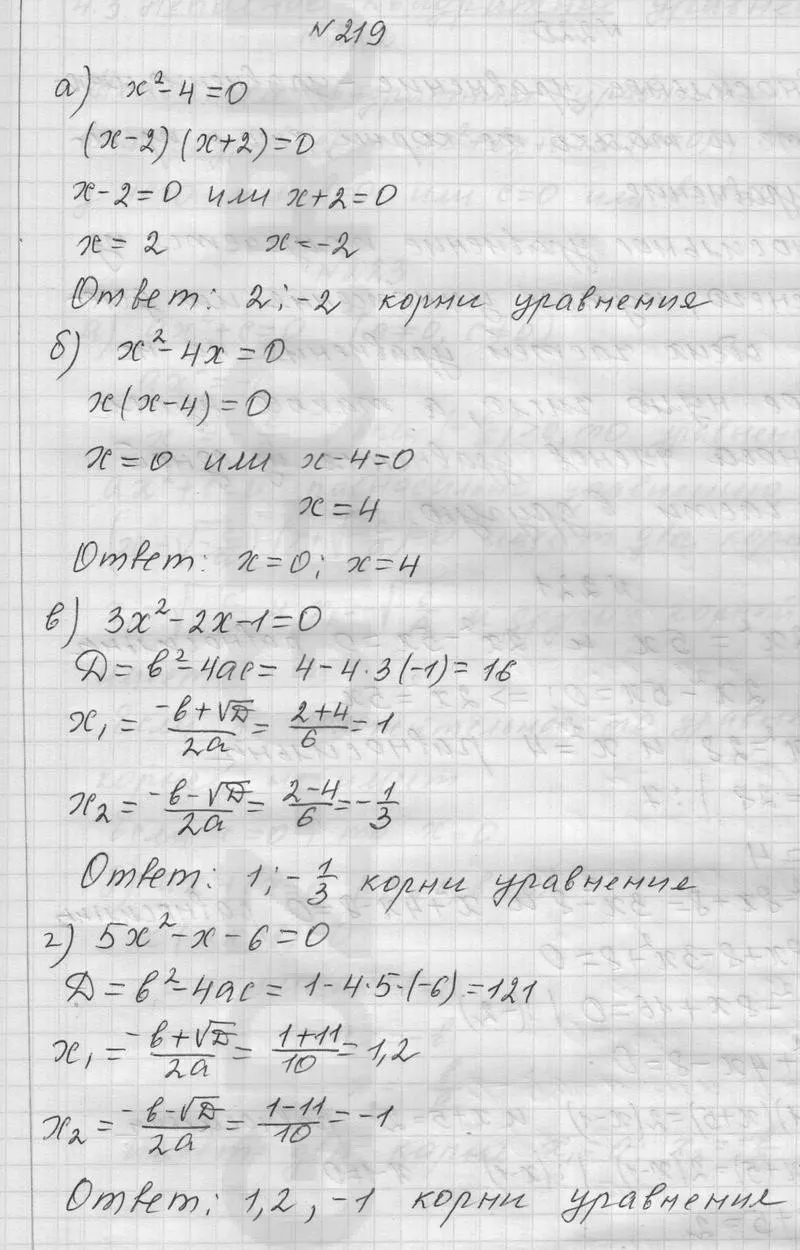 №219
а) x² - 4 = 0
(x-2)(x+2)=0
x-2=0 или x+2=0
x = 2 x=-2
Ответ: 2; -2 корни уравнения
б) x² - 4x = 0
x(x-4)=0
x=0 или x-4=0
x=4
Ответ: x=0; x=4
в) 3x² - 2x - 1 = 0
Д = в² - 4ас = 4 - 4·3(-1) = 16
x₁ = (-в+√Д)/2а = (2+4)/6 = 1
x₂ = (-в-√Д)/2а = (2-4)/6 = -1/3
Ответ: 1; -1/3 корни уравнения
г) 5x² - x - 6 = 0
Д = в² - 4ас = 1 - 4·5·(-6) = 121
x₁ = (-в+√Д)/2а = (1+11)/10 = 1,2
x₂ = (-в-√Д)/2а = (1-11)/10 = -1
Ответ: 1,2, -1 корни уравнения